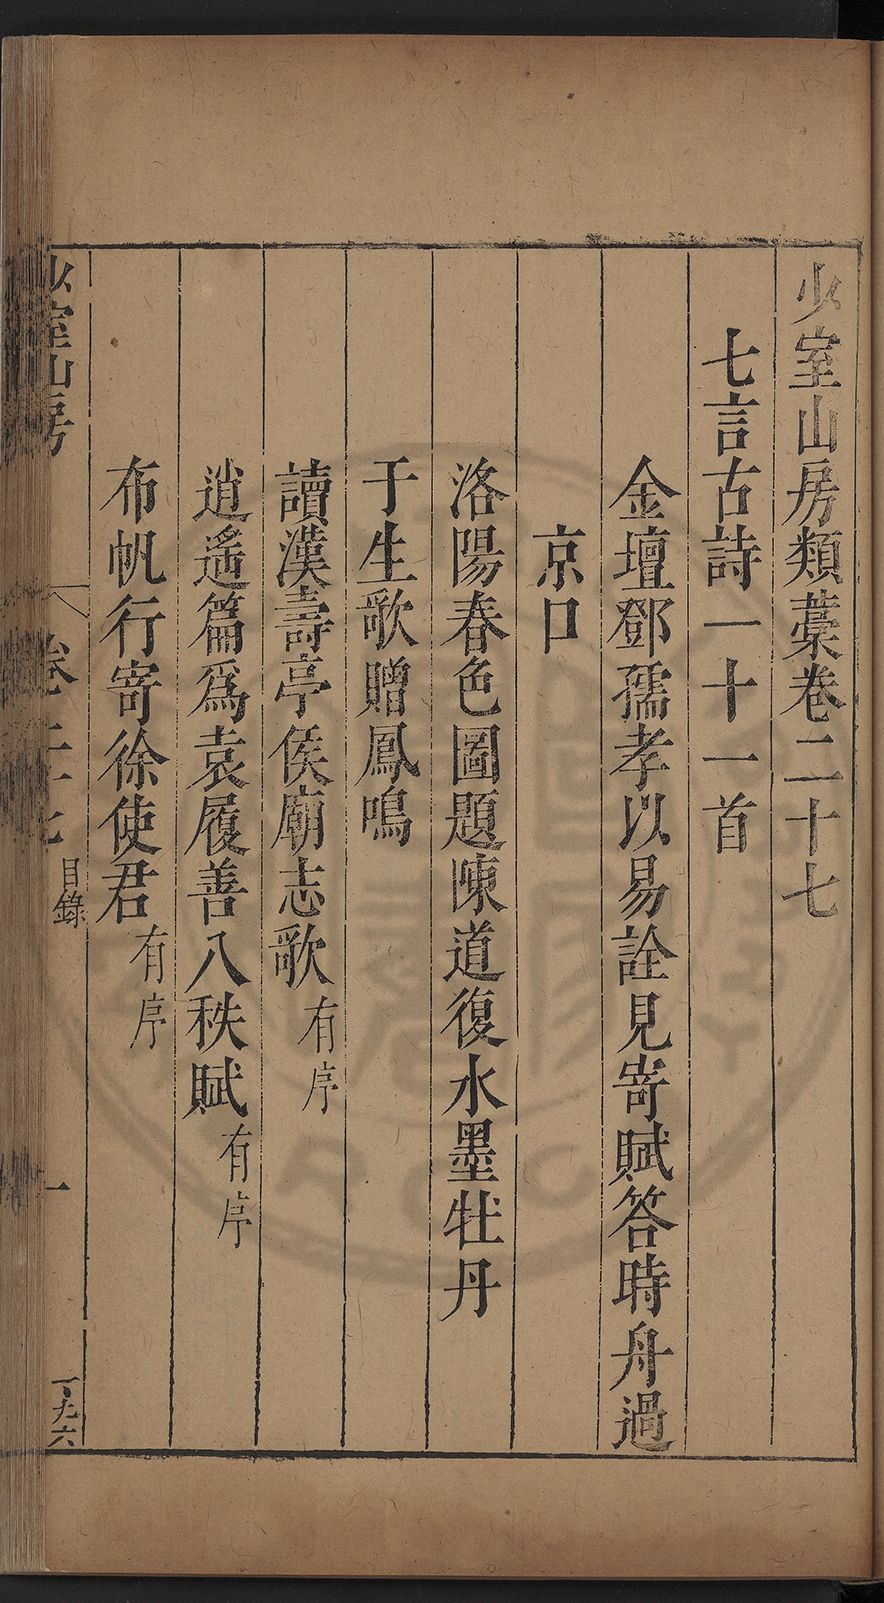 少室山房類藁卷二十七
七言古詩一十一首
金壇鄧孺孝以易詮見寄賦答時舟過
京口
洛陽春色圖題陳道復水墨牡丹
于生歌贈鳳鳴
讀漢壽亭侯廟志歌有序
逍遙篇爲袁履善八秩賦有序
布帆行寄徐使君有序
少室山房 卷二十七 目錄 一 丁九六